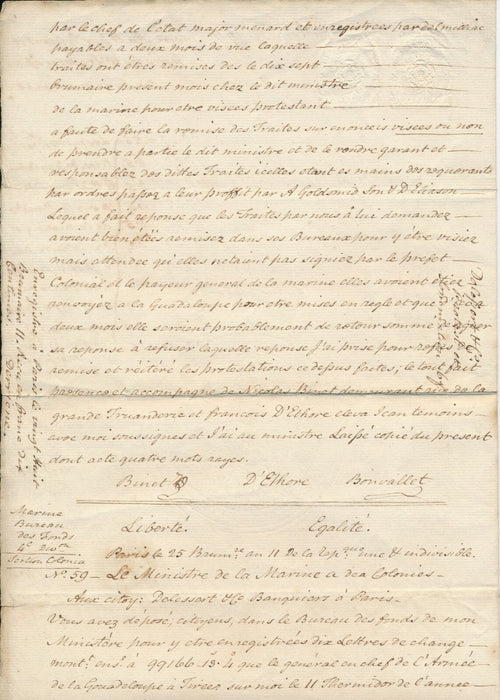 par le chef de l'etat major menard et enregistrees par
payables a deux mois de vue laquelle
traites ont étres remises des le dix sept
brumaire present mois chez le dit ministre
de la marine pour etre visées protestant
a faute de faire la remise des Traites sur enonceis visées ou non
de prendre a partie le dit ministre et de le rendre garant et
responsablez des dittes Traites icelles etant es mains des requerants
par ordres passez a leur proffit par A Goldsmid Son & D'Eliason
Lequel a fait reponse que les Traites par nous à lui demandez
avoient bien étées remisez dans ses Bureaux pour y être visiez
mais attendee qu'elles netaient pas signiez par le prefet
Colonial et le payeur general de la marine elles avoient étiez
renvoyez a la Guadaloupe pour etre mises en regle et que
deux mois elle seroient probablement de retour somme
sa réponse à refuser laquelle reponse J'ai prise pour refus
remise et réitéré les protestations ce dessus faites; le tout fait
presence et accompagne de Nicolas Binet demeurant rue de la
grande Truanderie et francois D'Elhore eleve Jean temoins
avec moi soussignes et J'ai au ministre Laissé copié du present
dont acte quatre mots rayes.
Binet D'Elhore Bonvallet
Enregistre a Paris le vingt huit
Brumaire 11. Recu un franc dix
Centimes
Marine
Bureau
des Fonds
4e
Section Colonia
Liberté. Egalité.
Paris le 25 Brumre an 11 de la Repque une & indivisible.
No. 59 - Le Ministre de la Marine a des Colonies
Aux citoy: Delessart & Co Banquiers à Paris
Vous avez dépose, citoyens, dans le Bureau des fonds de mon
Ministére pour y etre enregistrées dix Lettres de change
montt. ense. à 99166.13.4 que le general en chef de L'Armée
de la Gouadeloupe à Tirees sur moi le 11 Thermidor de l'année